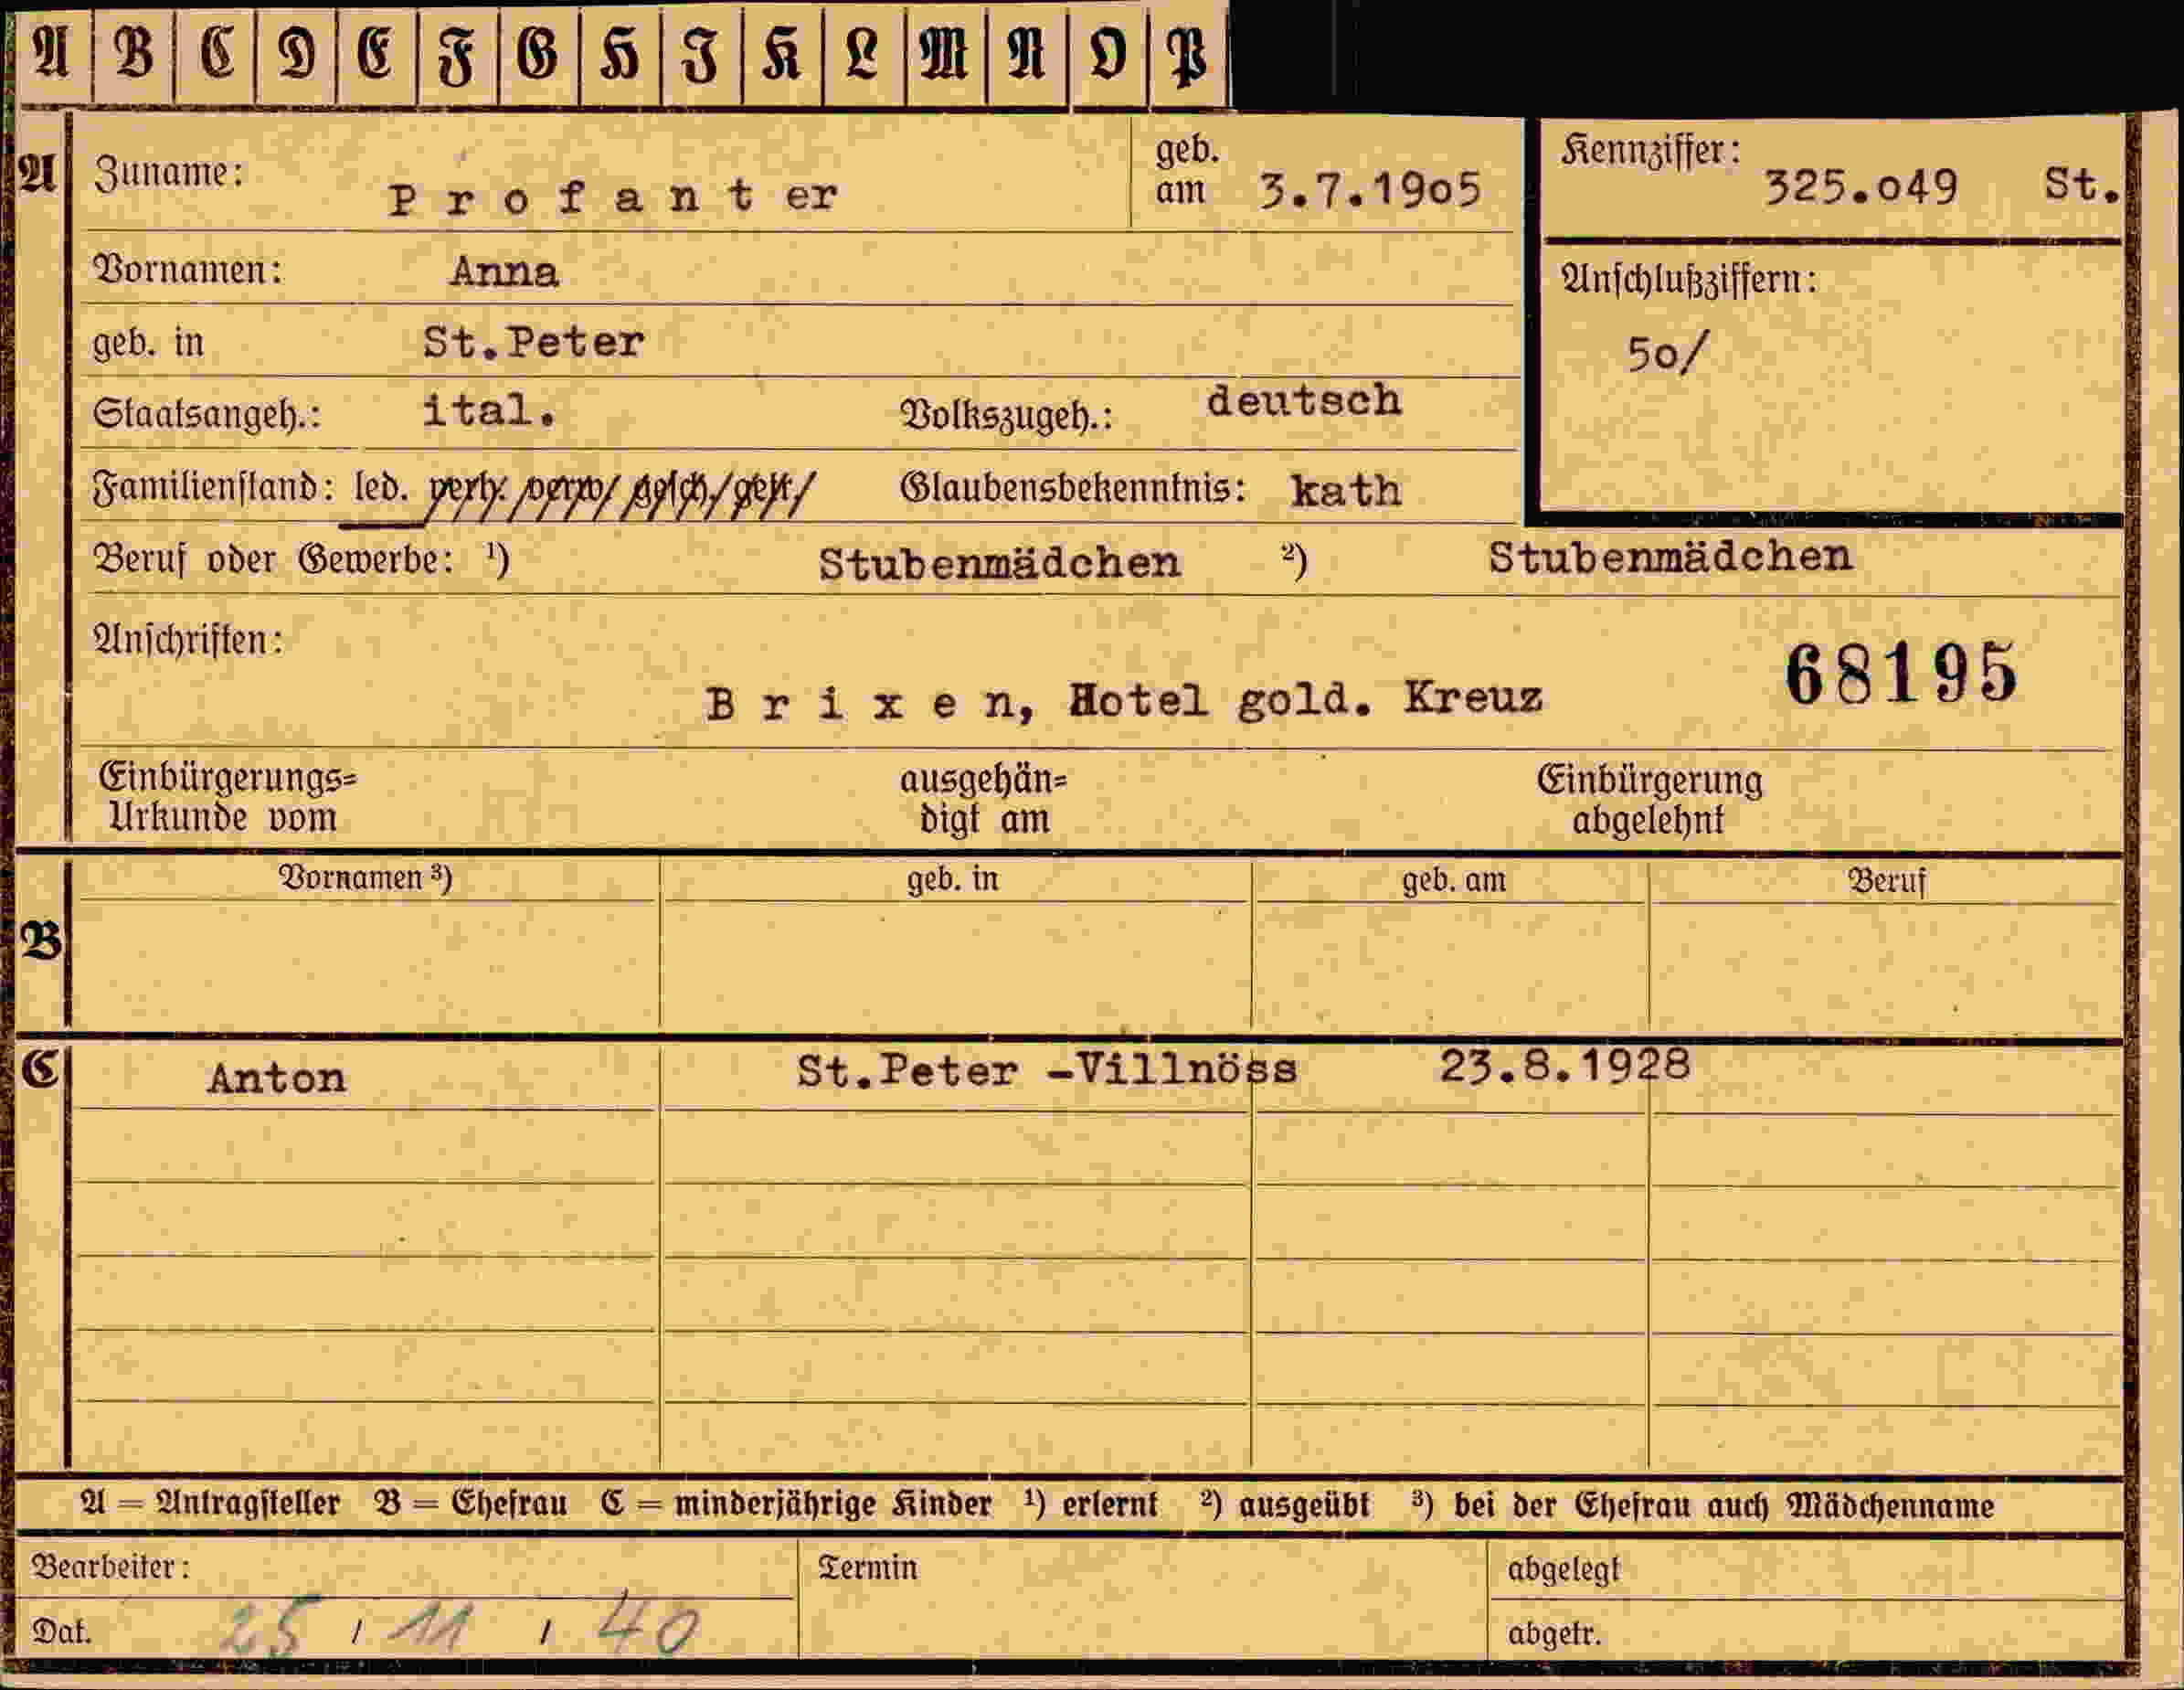 A B C D E F G H I K L M N O P
A Zuname: Profanter geb. am 3.7.1905 Kennziffer: 325.049 St.
Vornamen: Anna Anschlußziffern:
geb. in St.Peter 50/
Staatsangeh.: ital. Volkszugeh.: deutsch
Familienstand: led. verh. verw. gesch. getr. Glaubensbekenntnis: kath
Beruf oder Gewerbe: ¹) Stubenmädchen ²) Stubenmädchen
Anschriften: 68195
Brixen, Hotel gold. Kreuz
Einbürgerungs= ausgehän= Einbürgerung
Urkunde vom digt am abgelehnt
Vornamen ³) geb. in geb. am Beruf
B
C Anton St.Peter -Villnöss 23.8.1928
A = Antragsteller B = Ehefrau C = minderjährige Kinder ¹) erlernt ²) ausgeübt ³) bei der Ehefrau auch Mädchenname
Bearbeiter: Termin abgelegt
Dat. 25 / 11 / 40 abgetr.